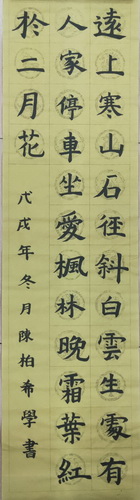 遠上寒山石徑斜白雲生處有
人家停車坐愛楓林晚霜葉紅
於二月花
戊戌年冬月陳柏希學書